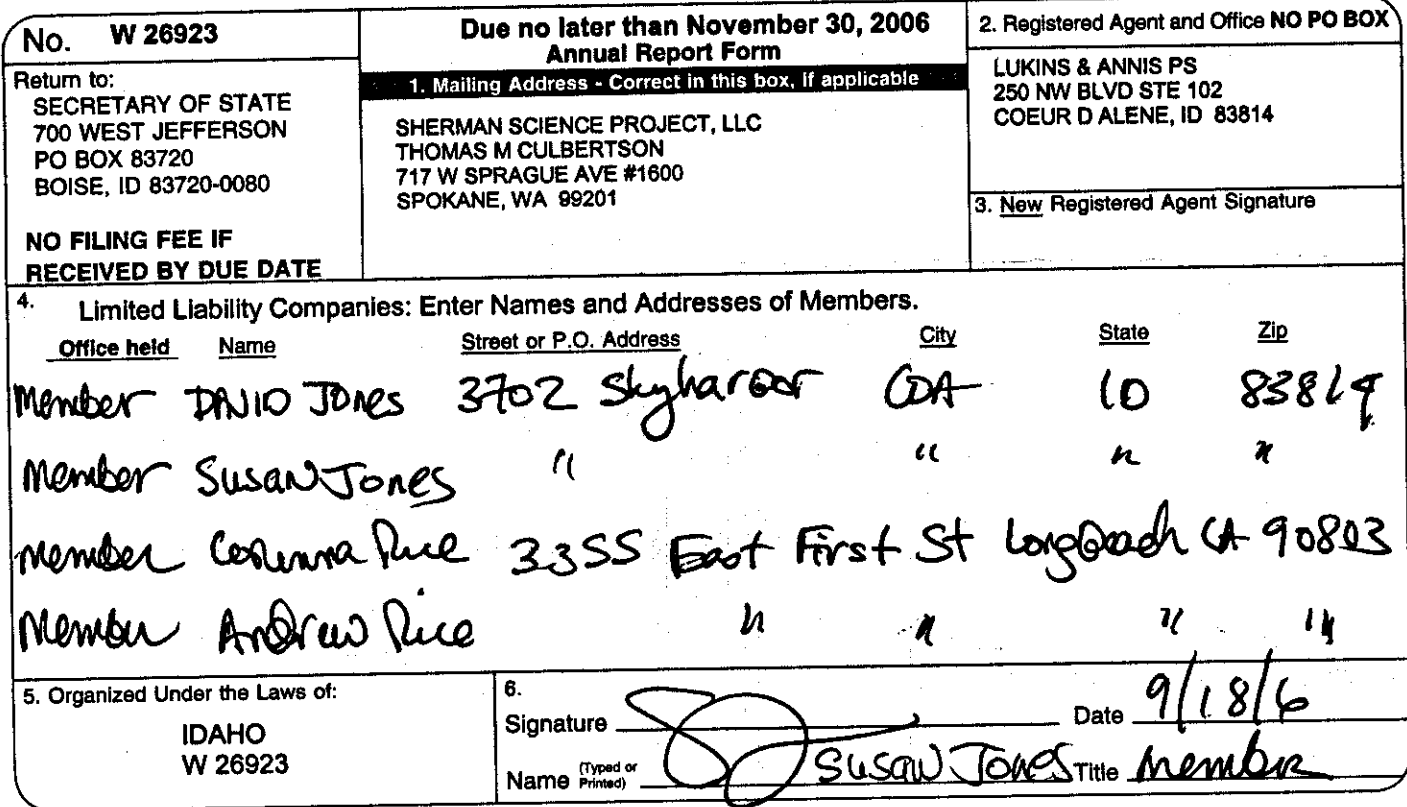 No. W 26923
Return to:
SECRETARY OF STATE
700 WEST JEFFERSON
PO BOX 83720
BOISE, ID 83720-0080
NO FILING FEE IF
RECEIVED BY DUE DATE
Due no later than November 30, 2006
Annual Report Form
1. Mailing Address - Correct in this box, if applicable
SHERMAN SCIENCE PROJECT, LLC
THOMAS M CULBERTSON
717 W SPRAGUE AVE #1600
SPOKANE, WA 99201
2. Registered Agent and Office NO PO BOX
LUKINS & ANNIS PS
250 NW BLVD STE 102
COEUR D ALENE, ID 83814
3. New Registered Agent Signature
4. Limited Liability Companies: Enter Names and Addresses of Members.
Office held Name Street or P.O. Address City State Zip
Member DAVID Jones 3702 Skyharbor CDA ID 83814
Member Susan Jones " " " "
Member Rice 3355 East First St Long Beach CA 90803
Member Andrew Rice " " " "
5. Organized Under the Laws of:
IDAHO
W 26923
6.
Signature Date 9/18/6
Name (Typed or Printed) Susan Jones Title Member